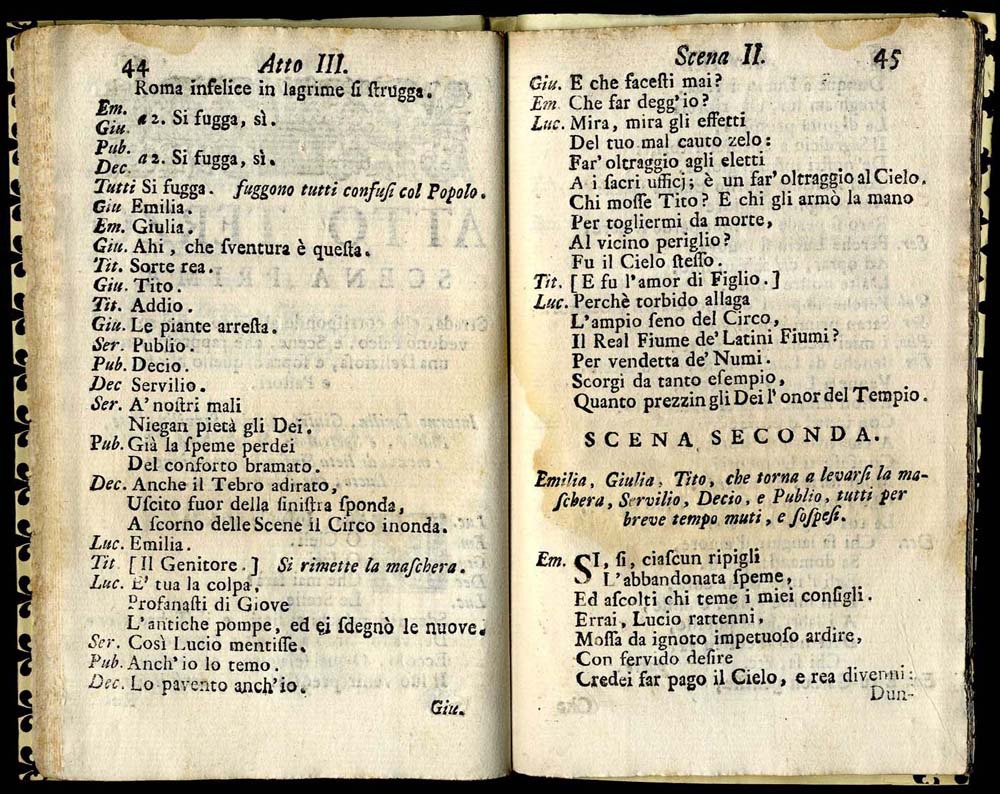 44 Atto III.
Roma infelice in lagrime ſi ſtrugga.
Em.
Giu. a 2. Si fugga, sì.
Pub.
Dec. a 2. Si fugga, sì.
Tutti Si fugga. fuggono tutti confuſi col Popolo.
Giu Emilia.
Em. Giulia.
Giu. Ahi, che ſventura è queſta.
Tit. Sorte rea.
Giu. Tito.
Tit. Addio.
Giu. Le piante arreſta.
Ser. Publio.
Pub. Decio.
Dec Servilio.
Ser. A' noſtri mali
Niegan pietà gli Dei.
Pub. Già la ſpeme perdei
Del conforto bramato.
Dec. Anche il Tebro adirato,
Uſcito fuor della ſiniſtra ſponda,
A ſcorno delle Scene il Circo inonda.
Luc. Emilia.
Tit [Il Genitore.] Si rimette la maſchera.
Luc. E' tua la colpa,
Profanaſti di Giove
L'antiche pompe, ed ei ſdegnò le nuove.
Ser. Così Lucio mentiſſe.
Pub. Anch'io lo temo.
Dec. Lo pavento anch'io.
Giu.
Scena II. 45
Giu. E che faceſti mai?
Em Che far degg'io?
Luc. Mira, mira gli effetti
Del tuo mal cauto zelo:
Far' oltraggio agli eletti
A i ſacri ufficj; è un far' oltraggio al Cielo.
Chi moſſe Tito? E chi gli armò la mano
Per togliermi da morte,
Al vicino periglio?
Fu il Cielo ſteſſo.
Tit. [E fu l'amor di Figlio.]
Luc. Perchè torbido allaga
L'ampio ſeno del Circo,
Il Real Fiume de' Latini Fiumi?
Per vendetta de' Numi.
Scorgi da tanto eſempio,
Quanto prezzin gli Dei l'onor del Tempio.
SCENA SECONDA.
Emilia, Giulia, Tito, che torna a levarſi la ma-
ſchera, Servilio, Decio, e Publio, tutti per
breve tempo muti, e ſoſpeſi.
Em. SI, ſi, ciaſcun ripigli
L'abbandonata ſpeme,
Ed aſcolti chi teme i miei conſigli.
Errai, Lucio rattenni,
Moſſa da ignoto impetuoſo ardire,
Con fervido deſire
Credei far pago il Cielo, e rea divenni:
Dun-